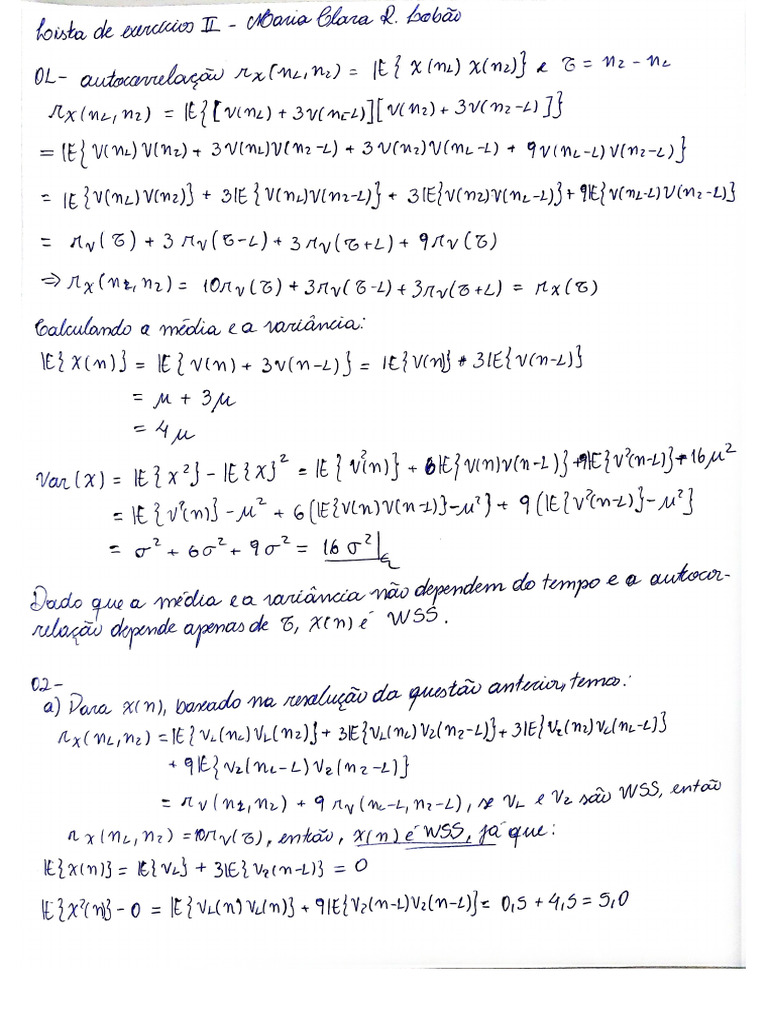 Lista de exercícios II - Maria Clara R. Lobão
01- autocorrelação rx(n1,n2) = IE{ x(n1) x(n2)} e τ = n2 - n1
rx(n1,n2) = IE{[v(n1) + 3v(n1-1)][v(n2) + 3v(n2-1)]}
= IE{v(n1)v(n2) + 3v(n1)v(n2-1) + 3v(n2)v(n1-1) + 9v(n1-1)v(n2-1)}
= IE{v(n1)v(n2)} + 3IE{v(n1)v(n2-1)} + 3IE{v(n2)v(n1-1)} + 9IE{v(n1-1)v(n2-1)}
= rv(τ) + 3rv(τ-1) + 3rv(τ+1) + 9rv(τ)
⇒ rx(n1,n2) = 10rv(τ) + 3rv(τ-1) + 3rv(τ+1) = rx(τ)
Calculando a média e a variância:
IE{x(n)} = IE{v(n) + 3v(n-1)} = IE{v(n)} + 3IE{v(n-1)}
= μ + 3μ
= 4μ
Var(x) = IE{x²} - IE{x}² = IE{v²(n)} + 6IE{v(n)v(n-1)} + 9IE{v²(n-1)} - 16μ²
= IE{v²(n)} - μ² + 6(IE{v(n)v(n-1)} - μ²} + 9(IE{v²(n-1)} - μ²}
= σ² + 6σ² + 9σ² = 16σ²
Dado que a média e a variância não dependem do tempo e a autocor-
relação depende apenas de τ, x(n) é WSS.
02-
a) Para x(n), baseado na resolução da questão anterior, temo:
rx(n1,n2) = IE{v1(n1)v1(n2)} + 3IE{v1(n1)v2(n2-1)} + 3IE{v2(n2)v1(n1-1)}
+ 9IE{v2(n1-1)v2(n2-1)}
= rv(n1,n2) + 9rv(n1-1,n2-1), se v1 e v2 são WSS, então
rx(n1,n2) = 10rv(τ), então, x(n) é WSS, já que:
IE{x(n)} = IE{v1} + 3IE{v2(n-1)} = 0
IE{x²(n)} - 0 = IE{v1(n)v1(n)} + 9IE{v2(n-1)v2(n-1)} = 0,5 + 4,5 = 5,0